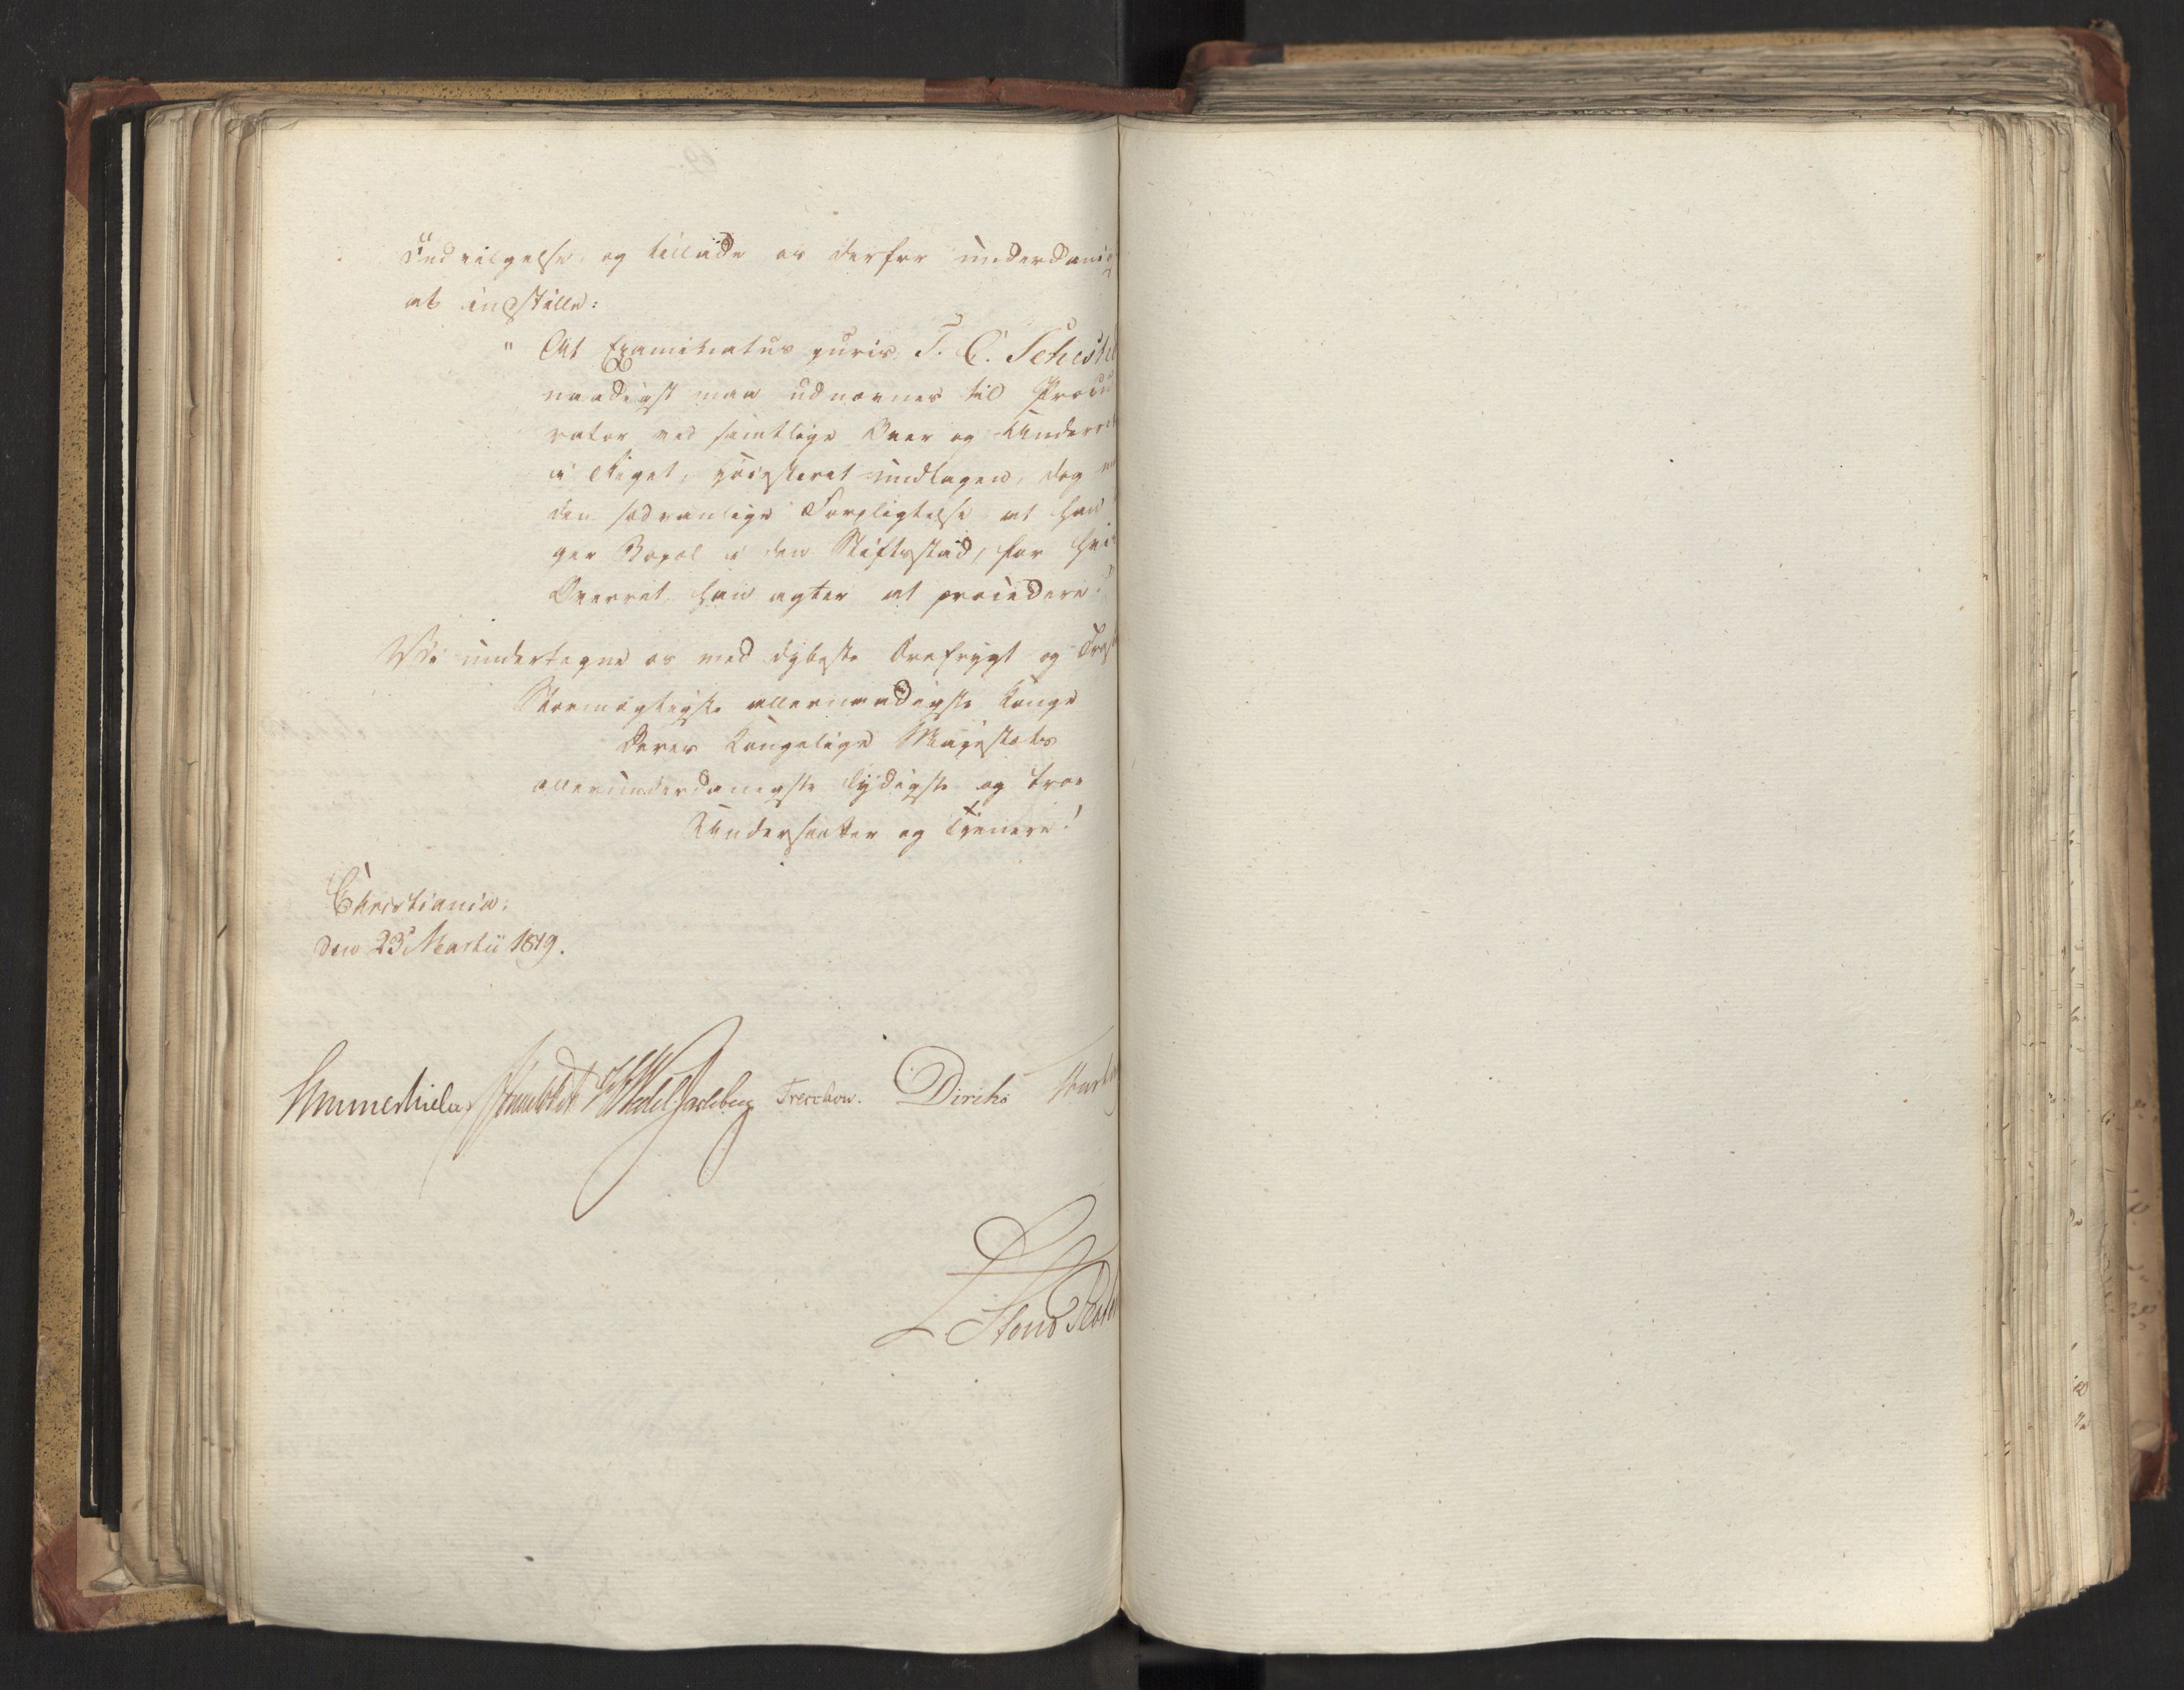 Indvilgelse og tillade os derfor underdanig
at indstille:
" At Examinatus juris T. C. Schestel
naadigst maa udnævnes til Procu
rator ved samtlige Over og Underret
i Riget, Høiesteret undtagen, dog m
den sædvanlige Forpligtelse at han
ger Bopæl i den Stiftsstad, for hvis
Overret han agter at procedere."
Vi undertegne os med dybeste Ærefrygt og Tros
Stormægtigste allernaadigste Konge
Deres Kongelige Majestæts
allerunderdanigste lydigste og troe
Undersaatter og Tjenere!
Christiania:
den 23d Martii 1819.
Sommerhielm HWedelJarlsberg Treschow. Diriks